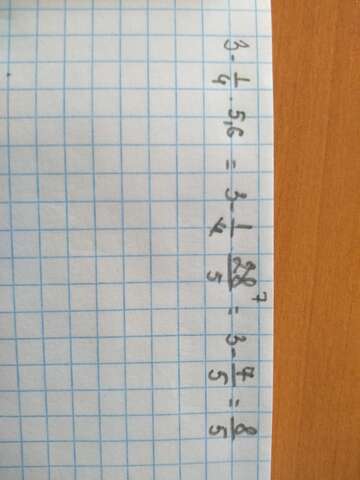 3 - 1/4 · 5,6 = 3 - 1/4 28/5 7 = 3 - 7/5 = 8/5